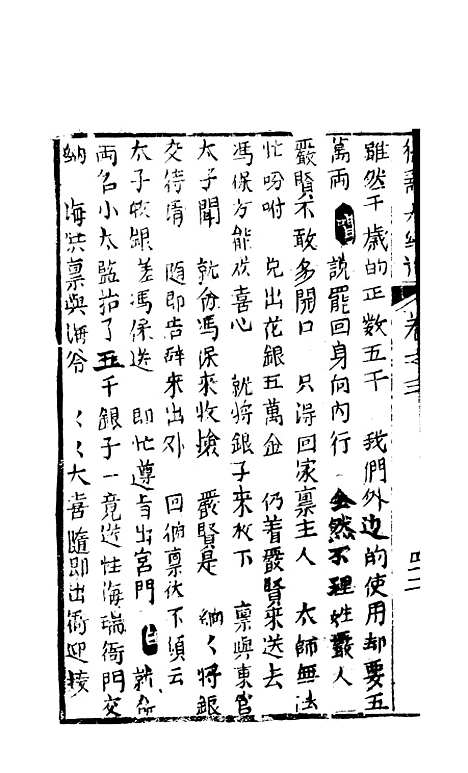 雖然千歲的正数五千 我們外边的使用却要五
萬両 唱 說罷回身向內行 全然不理姓嚴人
嚴賢不敢多開口 只得回家禀主人 太師無法
忙吩咐 兌出花銀五萬金 仍着嚴賢來送去
馮保方能放喜心 就將銀子來收下 禀與東宮
太子聞 就命馮保來收搶 嚴賢是 納〻將銀
交待清 隨即告辞來出外 回衙禀伏不須云
太子收銀差馮保送 即忙遵旨出宮門 就命
両名小太監抬了五千銀子一竟送往海瑞衙門交
納 海洪禀與海爷 〻〻大喜隨即出衙迎接